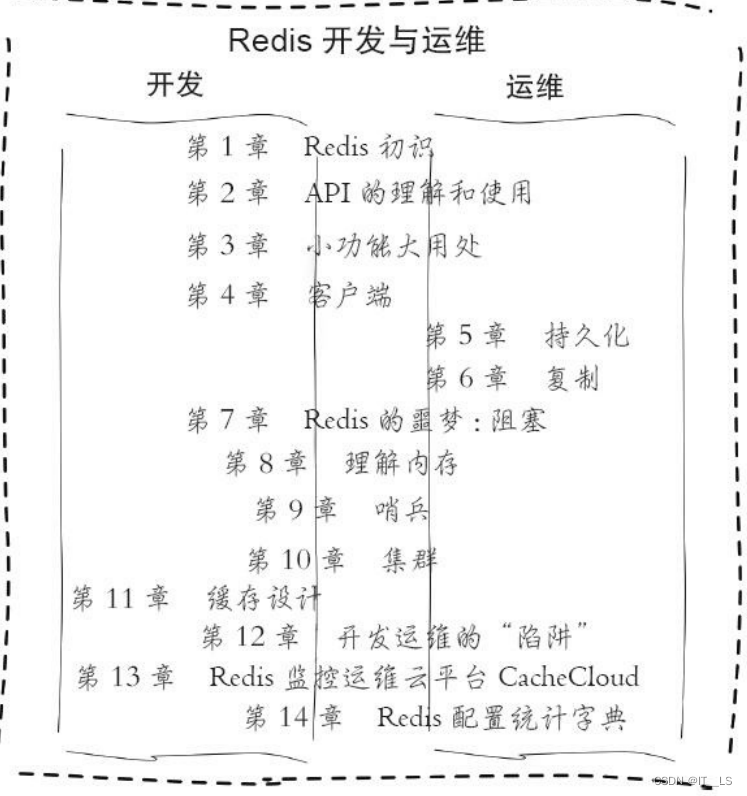 Redis 开发与运维
开发 运维
第 1 章 Redis 初识
第 2 章 API 的理解和使用
第 3 章 小功能大用处
第 4 章 客户端
第 5 章 持久化
第 6 章 复制
第 7 章 Redis 的噩梦：阻塞
第 8 章 理解内存
第 9 章 哨兵
第 10 章 集群
第 11 章 缓存设计
第 12 章 开发运维的“陷阱”
第 13 章 Redis 监控运维云平台 CacheCloud
第 14 章 Redis 配置统计字典
CSDN @IT__LS